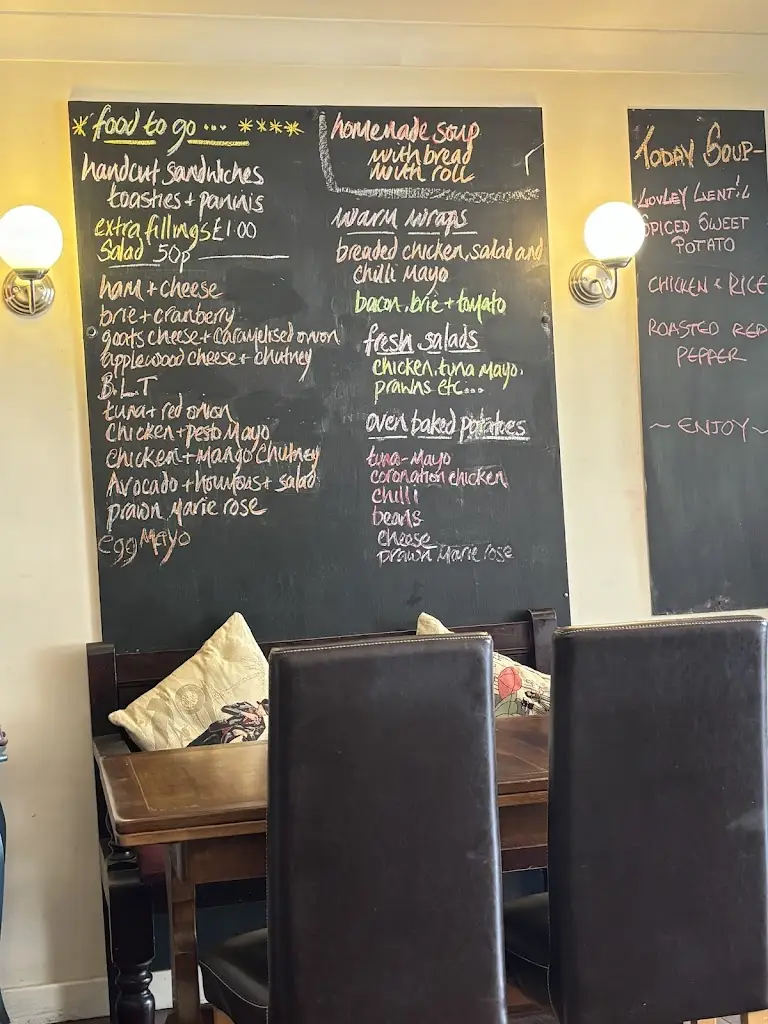 food to go ... ****
handcut sandwiches
toasties + paninis
extra fillings £1.00
Salad 50p
ham + cheese
brie + cranberry
goats cheese + caramelised onion
applewood cheese + chutney
B.L.T
tuna + red onion
chicken + pesto Mayo
chicken + Mango Chutney
Avocado + houmous + salad
prawn Marie rose
egg Mayo
homemade soup
with bread
with roll
warm wraps
breaded chicken, salad and
chilli Mayo
bacon, brie + tomato
fresh salads
chicken, tuna Mayo,
prawns etc...
oven baked potatoes
tuna-Mayo
coronation chicken
chilli
beans
cheese
prawn Marie rose
TODAY SOUP-
LOVLEY LENTIL
SPICED SWEET
POTATO
CHICKEN & RICE
ROASTED RED
PEPPER
~ ENJOY ~